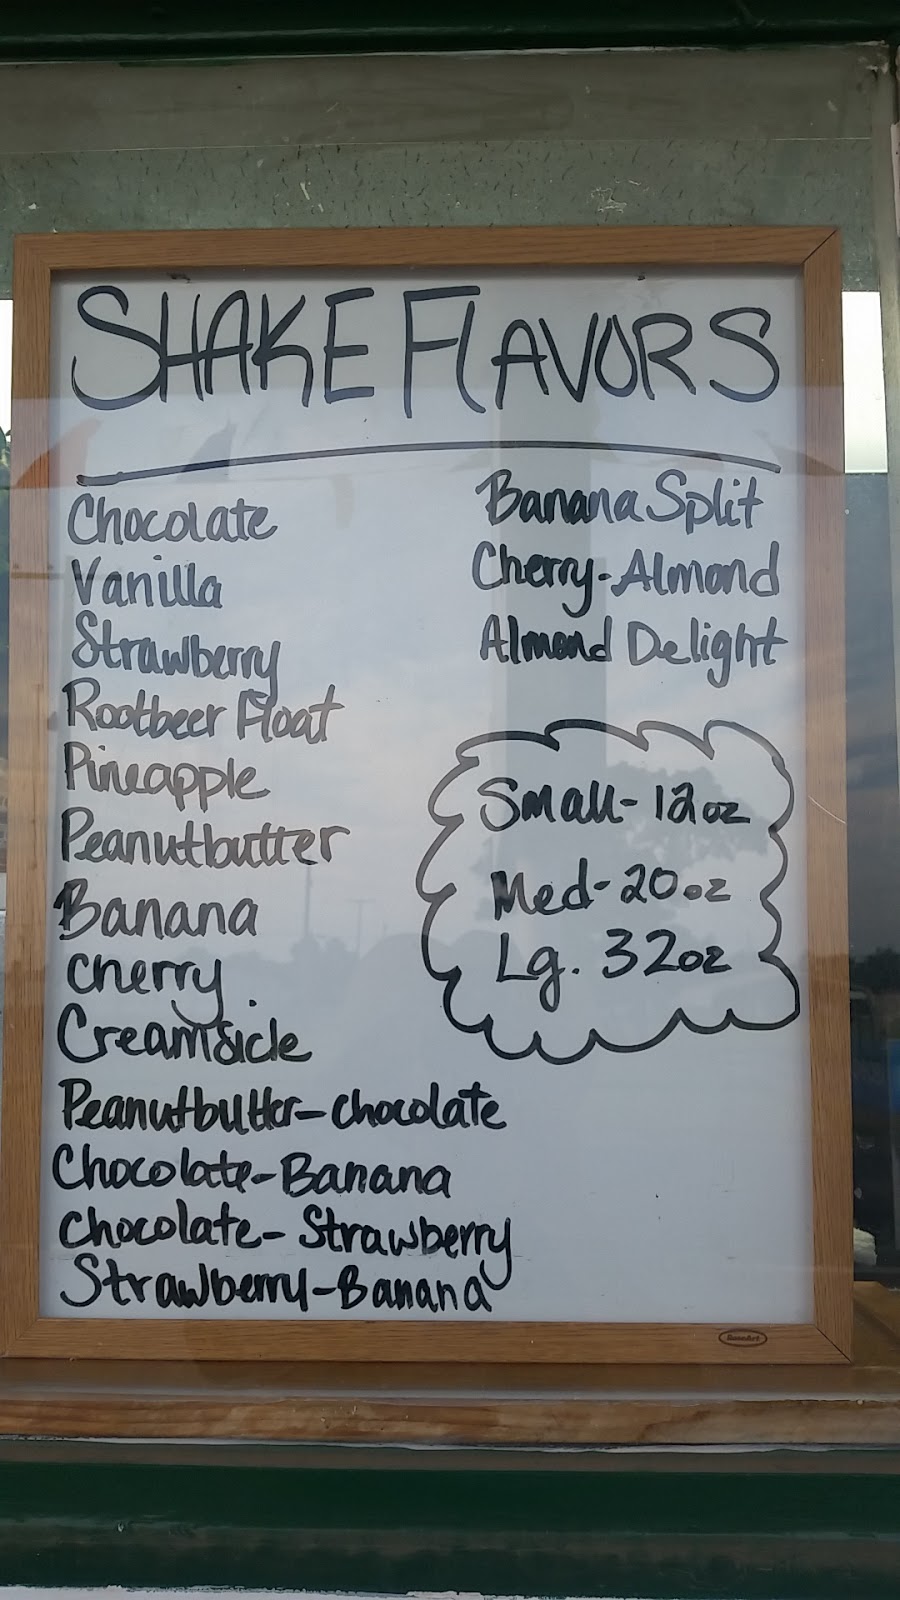 SHAKE FLAVORS
Chocolate
Vanilla
Strawberry
Rootbeer Float
Pineapple
Peanutbutter
Banana
Cherry
Creamsicle
Peanutbutter-Chocolate
Chocolate-Banana
Chocolate-Strawberry
Strawberry-Banana
Banana Split
Cherry-Almond
Almond Delight
Small-12oz
Med-20oz
Lg. 32oz
RoseArt